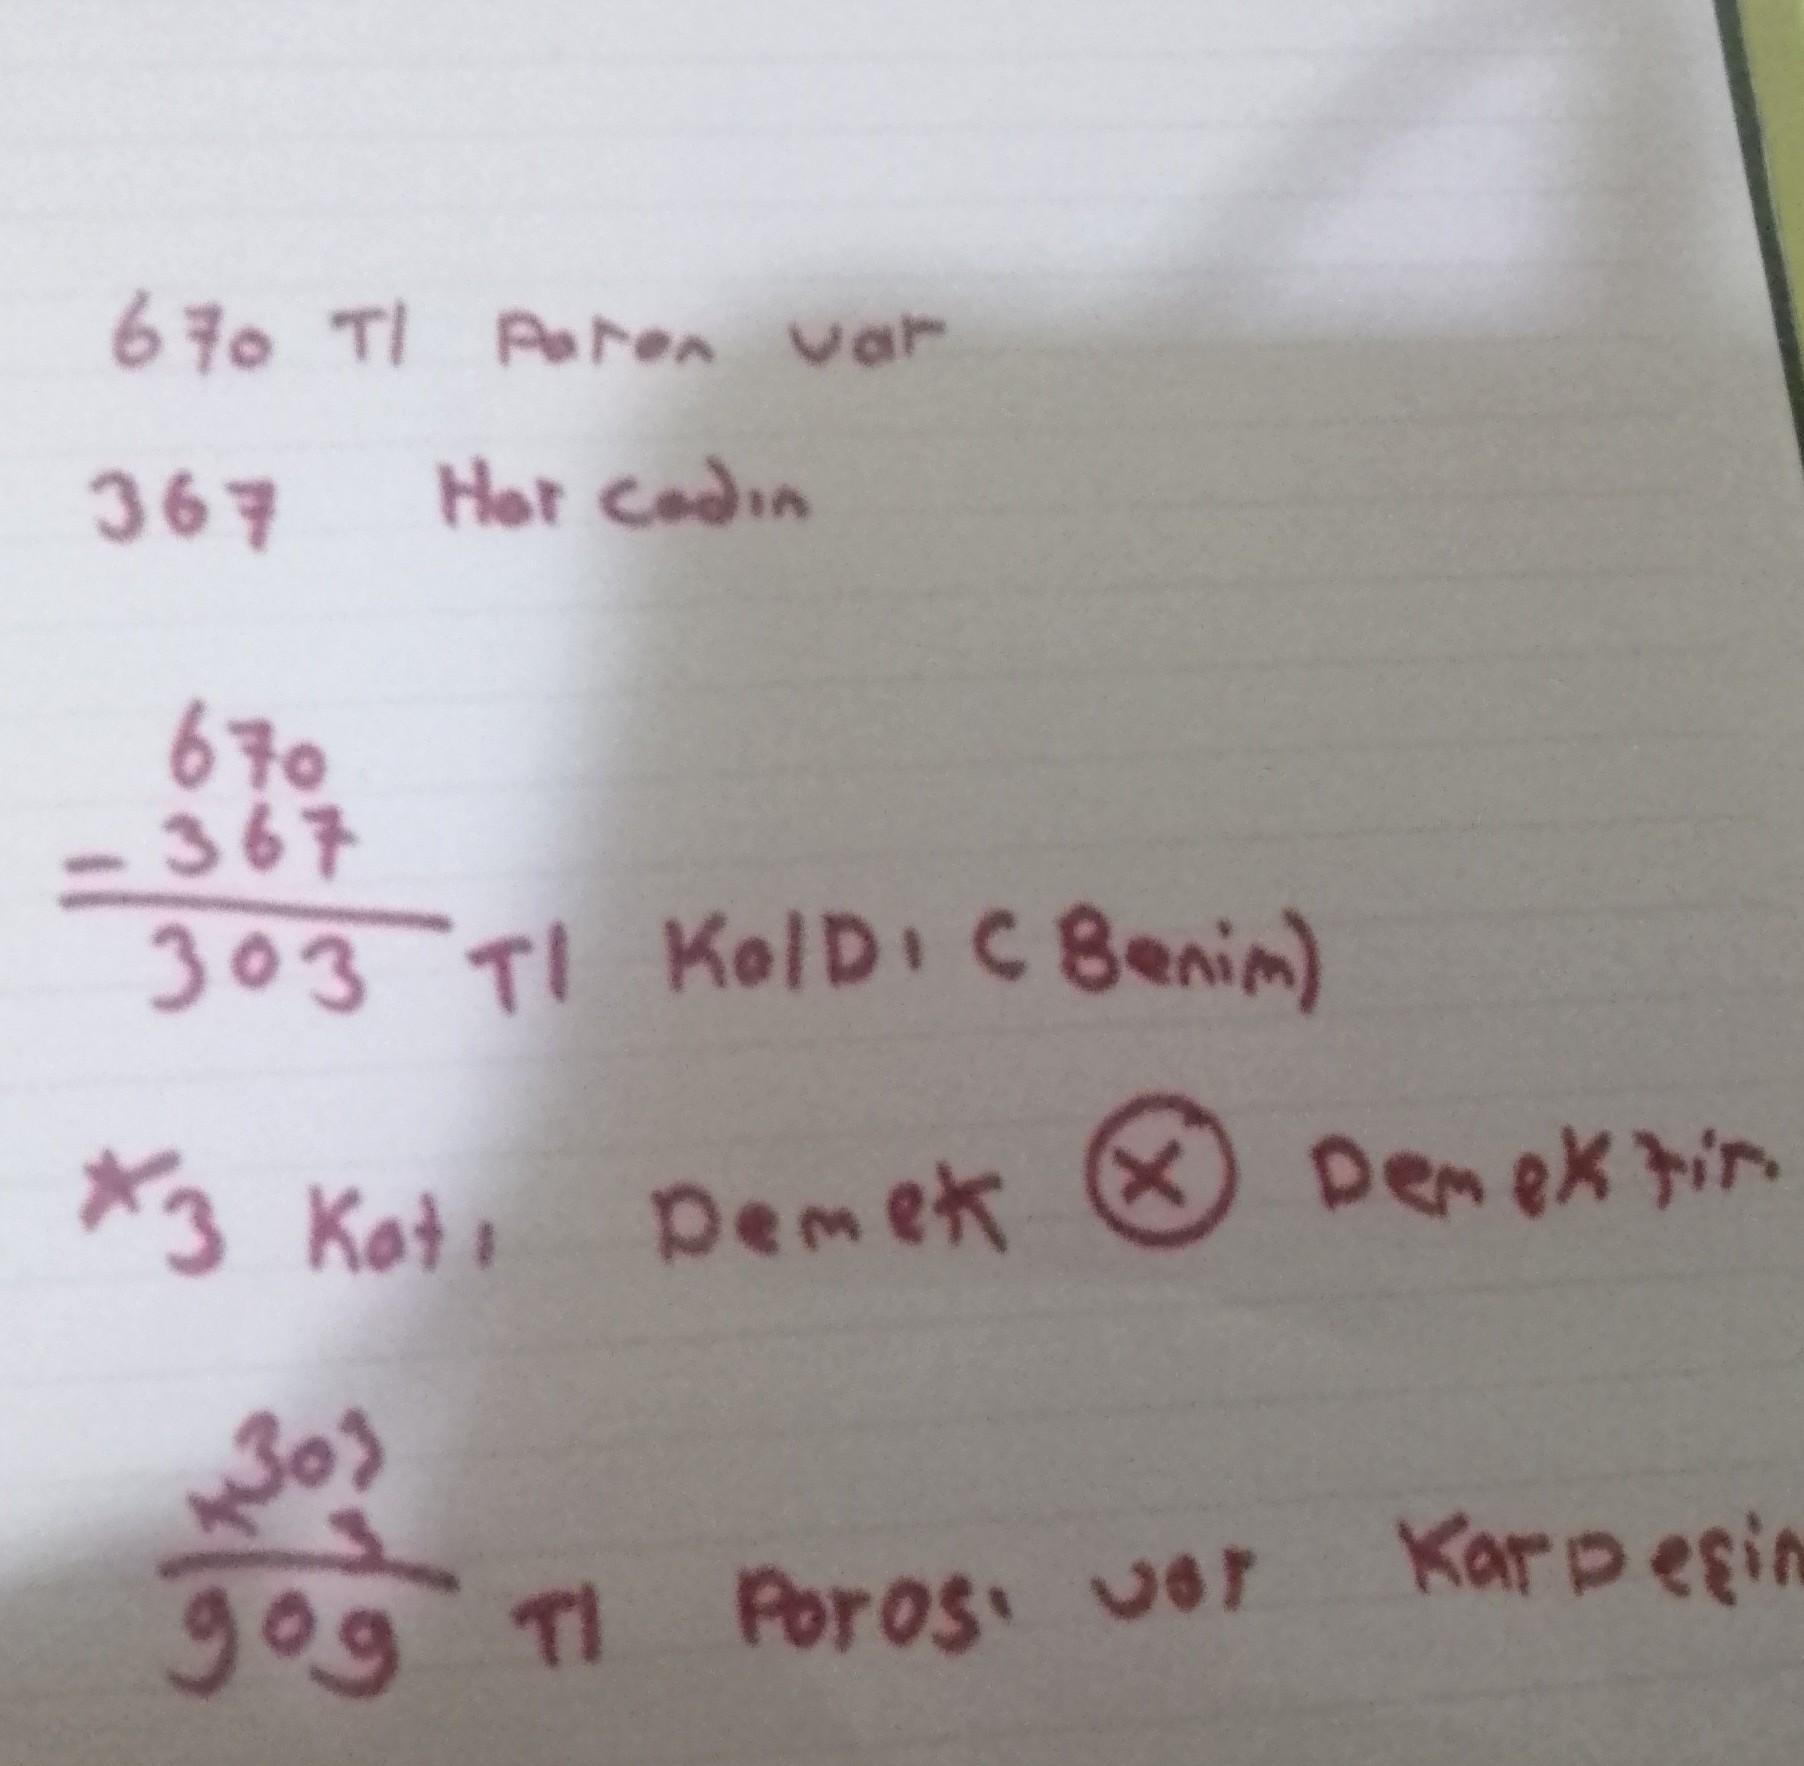 670 Tl Paran var
367 Harcadın
670
- 367
303 Tl KalDı (Benim)
*3 Katı Demek X Demektir.
303
x 3
909 Tl Parası var KarDeşin